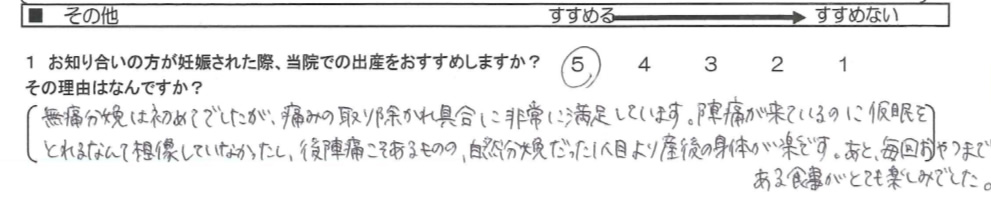 ■ その他 すすめる すすめない
1 お知り合いの方が妊娠された際、当院での出産をおすすめしますか? 5 4 3 2 1
その理由はなんですか?
無痛分娩は初めてでしたが、痛みの取り除かれ具合に非常に満足しています。陣痛が来ているのに仮眠を
とれるなんて想像していなかったし、後陣痛こそあるものの、自然分娩だった1人目より産後の身体が楽です。あと、毎回おやつまで
ある食事がとても楽しみでした。